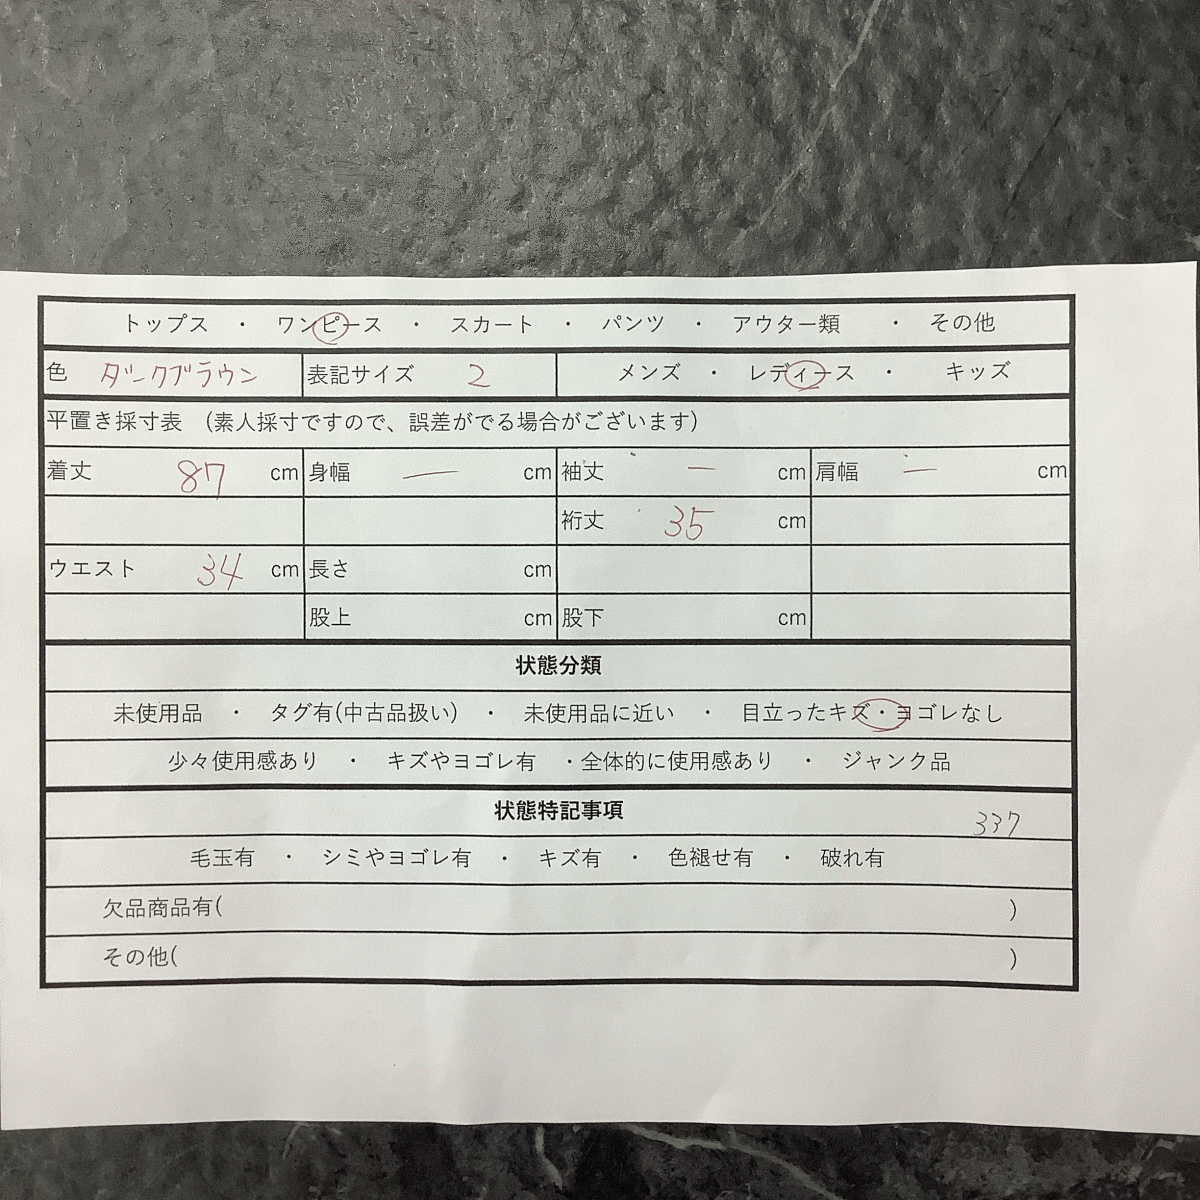 トップス ・ ワンピース ・ スカート ・ パンツ ・ アウター類 ・ その他
色 ダークブラウン 表記サイズ 2 メンズ ・ レディース ・ キッズ
平置き採寸表 (素人採寸ですので、誤差がでる場合がございます)
着丈 87 cm 身幅 — cm 袖丈 — cm 肩幅 — cm
裄丈 35 cm
ウエスト 34 cm 長さ cm
股上 cm 股下 cm
状態分類
未使用品 ・ タグ有(中古品扱い) ・ 未使用品に近い ・ 目立ったキズ・ヨゴレなし
少々使用感あり ・ キズやヨゴレ有 ・全体的に使用感あり ・ ジャンク品
状態特記事項
337
毛玉有 ・ シミやヨゴレ有 ・ キズ有 ・ 色褪せ有 ・ 破れ有
欠品商品有( )
その他( )